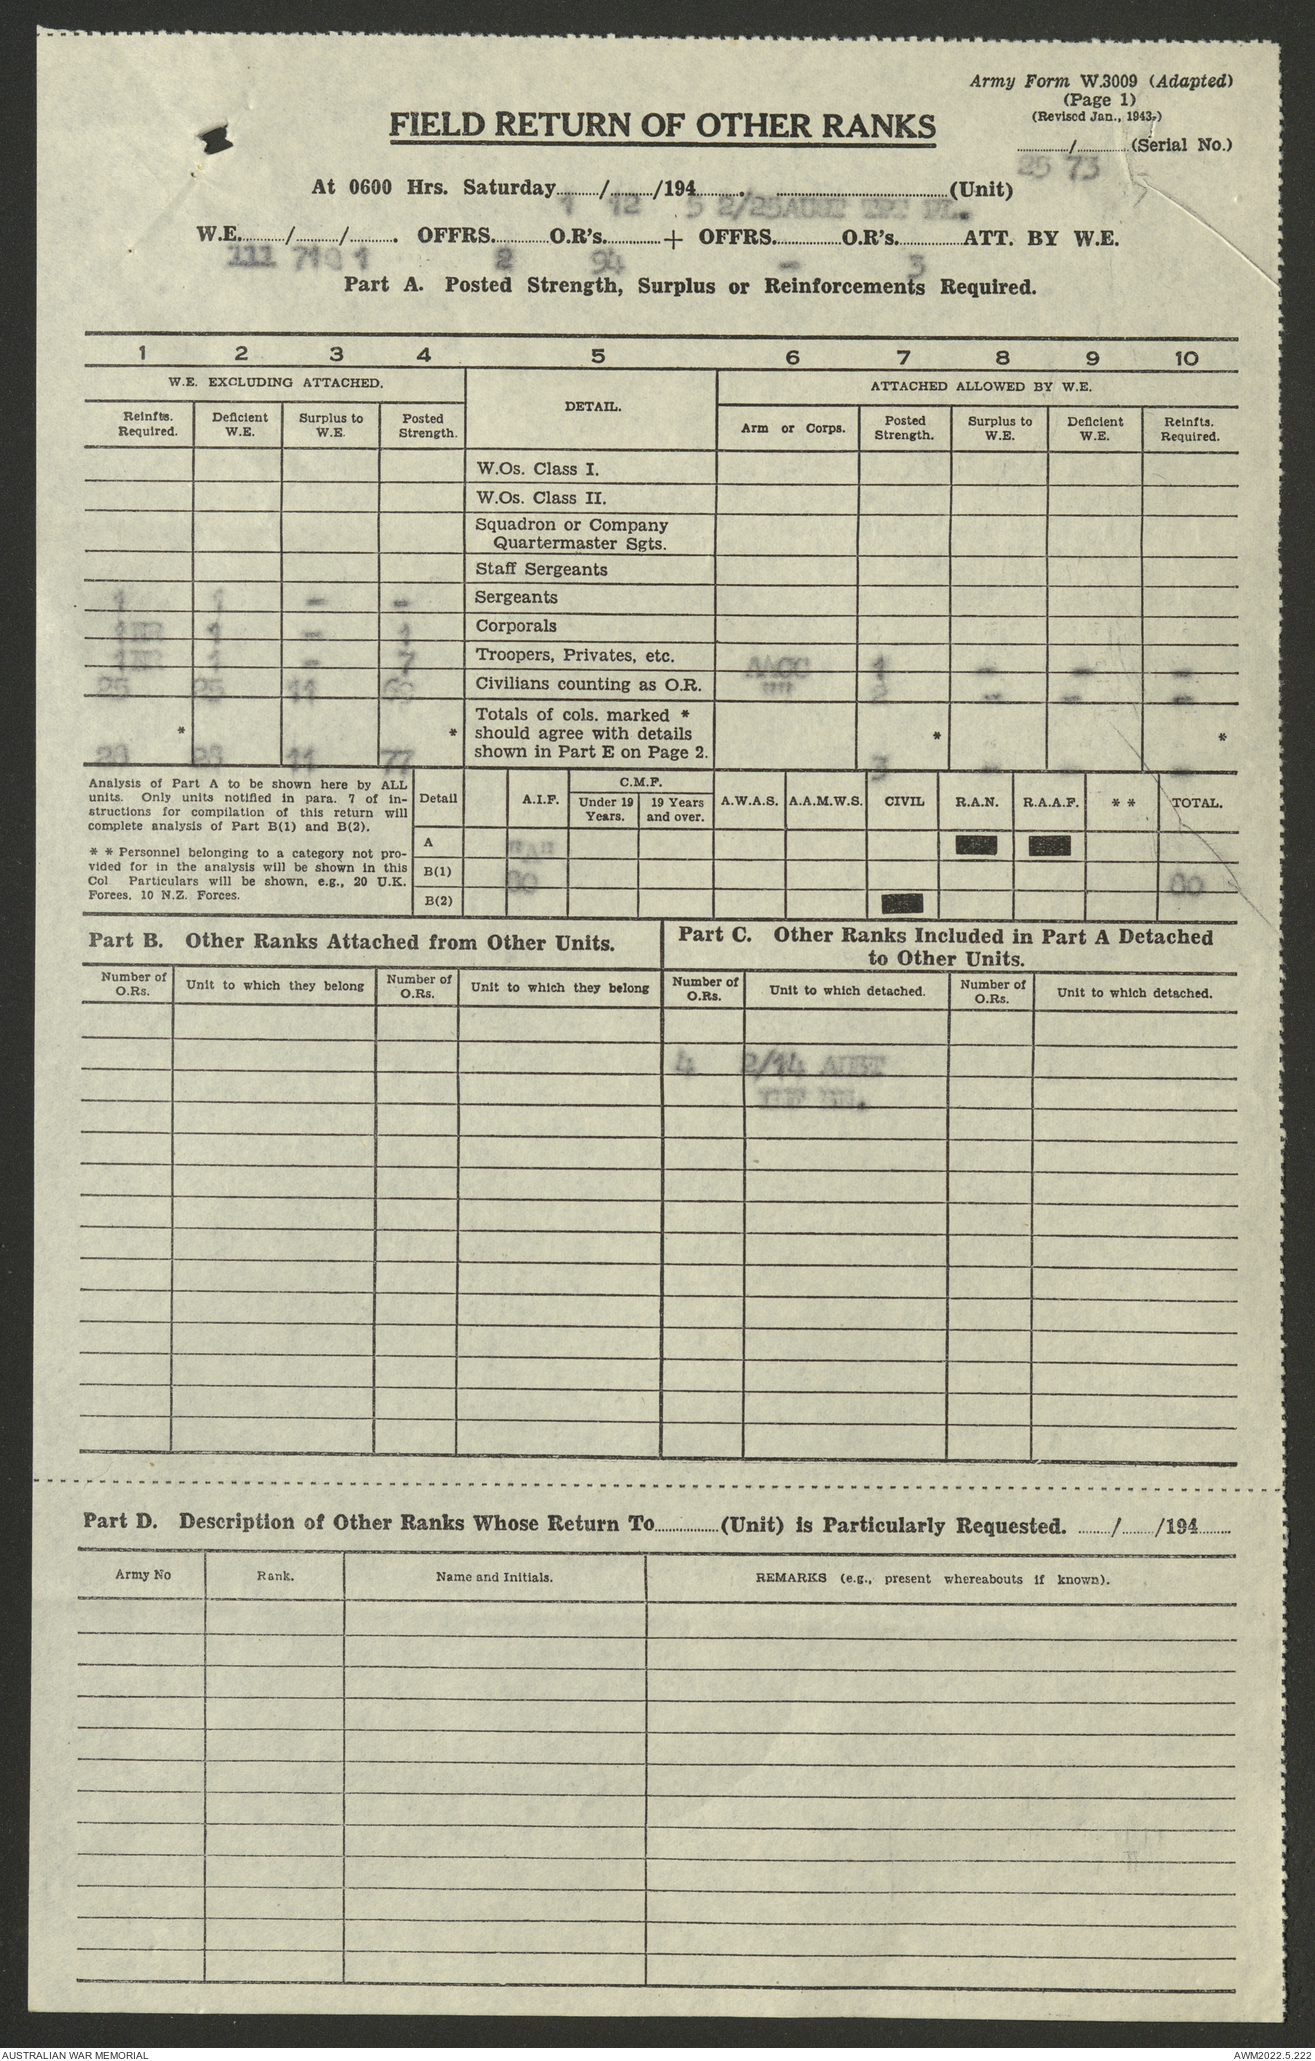 Army Form W.3009 (Adapted)
(Page 1)
(Revised Jan., 1943.)
FIELD RETURN OF OTHER RANKS
............/............(Serial No.)
25 73
At 0600 Hrs. Saturday........./......../194.......... ........................................(Unit)
1 12 5 2/25 AUST PL.
W.E........../........../.......... OFFRS............O.R's............+ OFFRS..............O.R's..............ATT. BY W.E.
111 1 2 94 - 3
Part A. Posted Strength, Surplus or Reinforcements Required.
1 2 3 4 5 6 7 8 9 10
W.E. EXCLUDING ATTACHED. DETAIL. ATTACHED ALLOWED BY W.E.
Reinfts. Required. Deficient W.E. Surplus to W.E. Posted Strength. Arm or Corps. Posted Strength. Surplus to W.E. Deficient W.E. Reinfts. Required.
W.Os. Class I.
W.Os. Class II.
Squadron or Company
Quartermaster Sgts.
Staff Sergeants
1 1 - - Sergeants
1 1 - Corporals
1 1 - 7 Troopers, Privates, etc. AACC 1 - - -
25 25 11 Civilians counting as O.R. "" 2 - - -
Totals of cols. marked *
* * should agree with details * *
shown in Part E on Page 2.
28 28 11 77 3 - - -
Analysis of Part A to be shown here by ALL
units. Only units notified in para. 7 of in-
structions for compilation of this return will
complete analysis of Part B(1) and B(2).
* * Personnel belonging to a category not pro-
vided for in the analysis will be shown in this
Col Particulars will be shown, e.g., 20 U.K.
Forces, 10 N.Z. Forces.
Detail A.I.F. C.M.F. Under 19 Years. 19 Years and over. A.W.A.S. A.A.M.W.S. CIVIL R.A.N. R.A.A.F. * * TOTAL.
A "A"
B(1) 80 80
B(2)
Part B. Other Ranks Attached from Other Units.
Part C. Other Ranks Included in Part A Detached
to Other Units.
Number of O.Rs. Unit to which they belong Number of O.Rs. Unit to which they belong Number of O.Rs. Unit to which detached. Number of O.Rs. Unit to which detached.
4 2/14 AUST
INF BN.
Part D. Description of Other Ranks Whose Return To..............(Unit) is Particularly Requested. ......../......../194........
Army No Rank. Name and Initials. REMARKS (e.g., present whereabouts if known).
AUSTRALIAN WAR MEMORIAL AWM2022.5.222